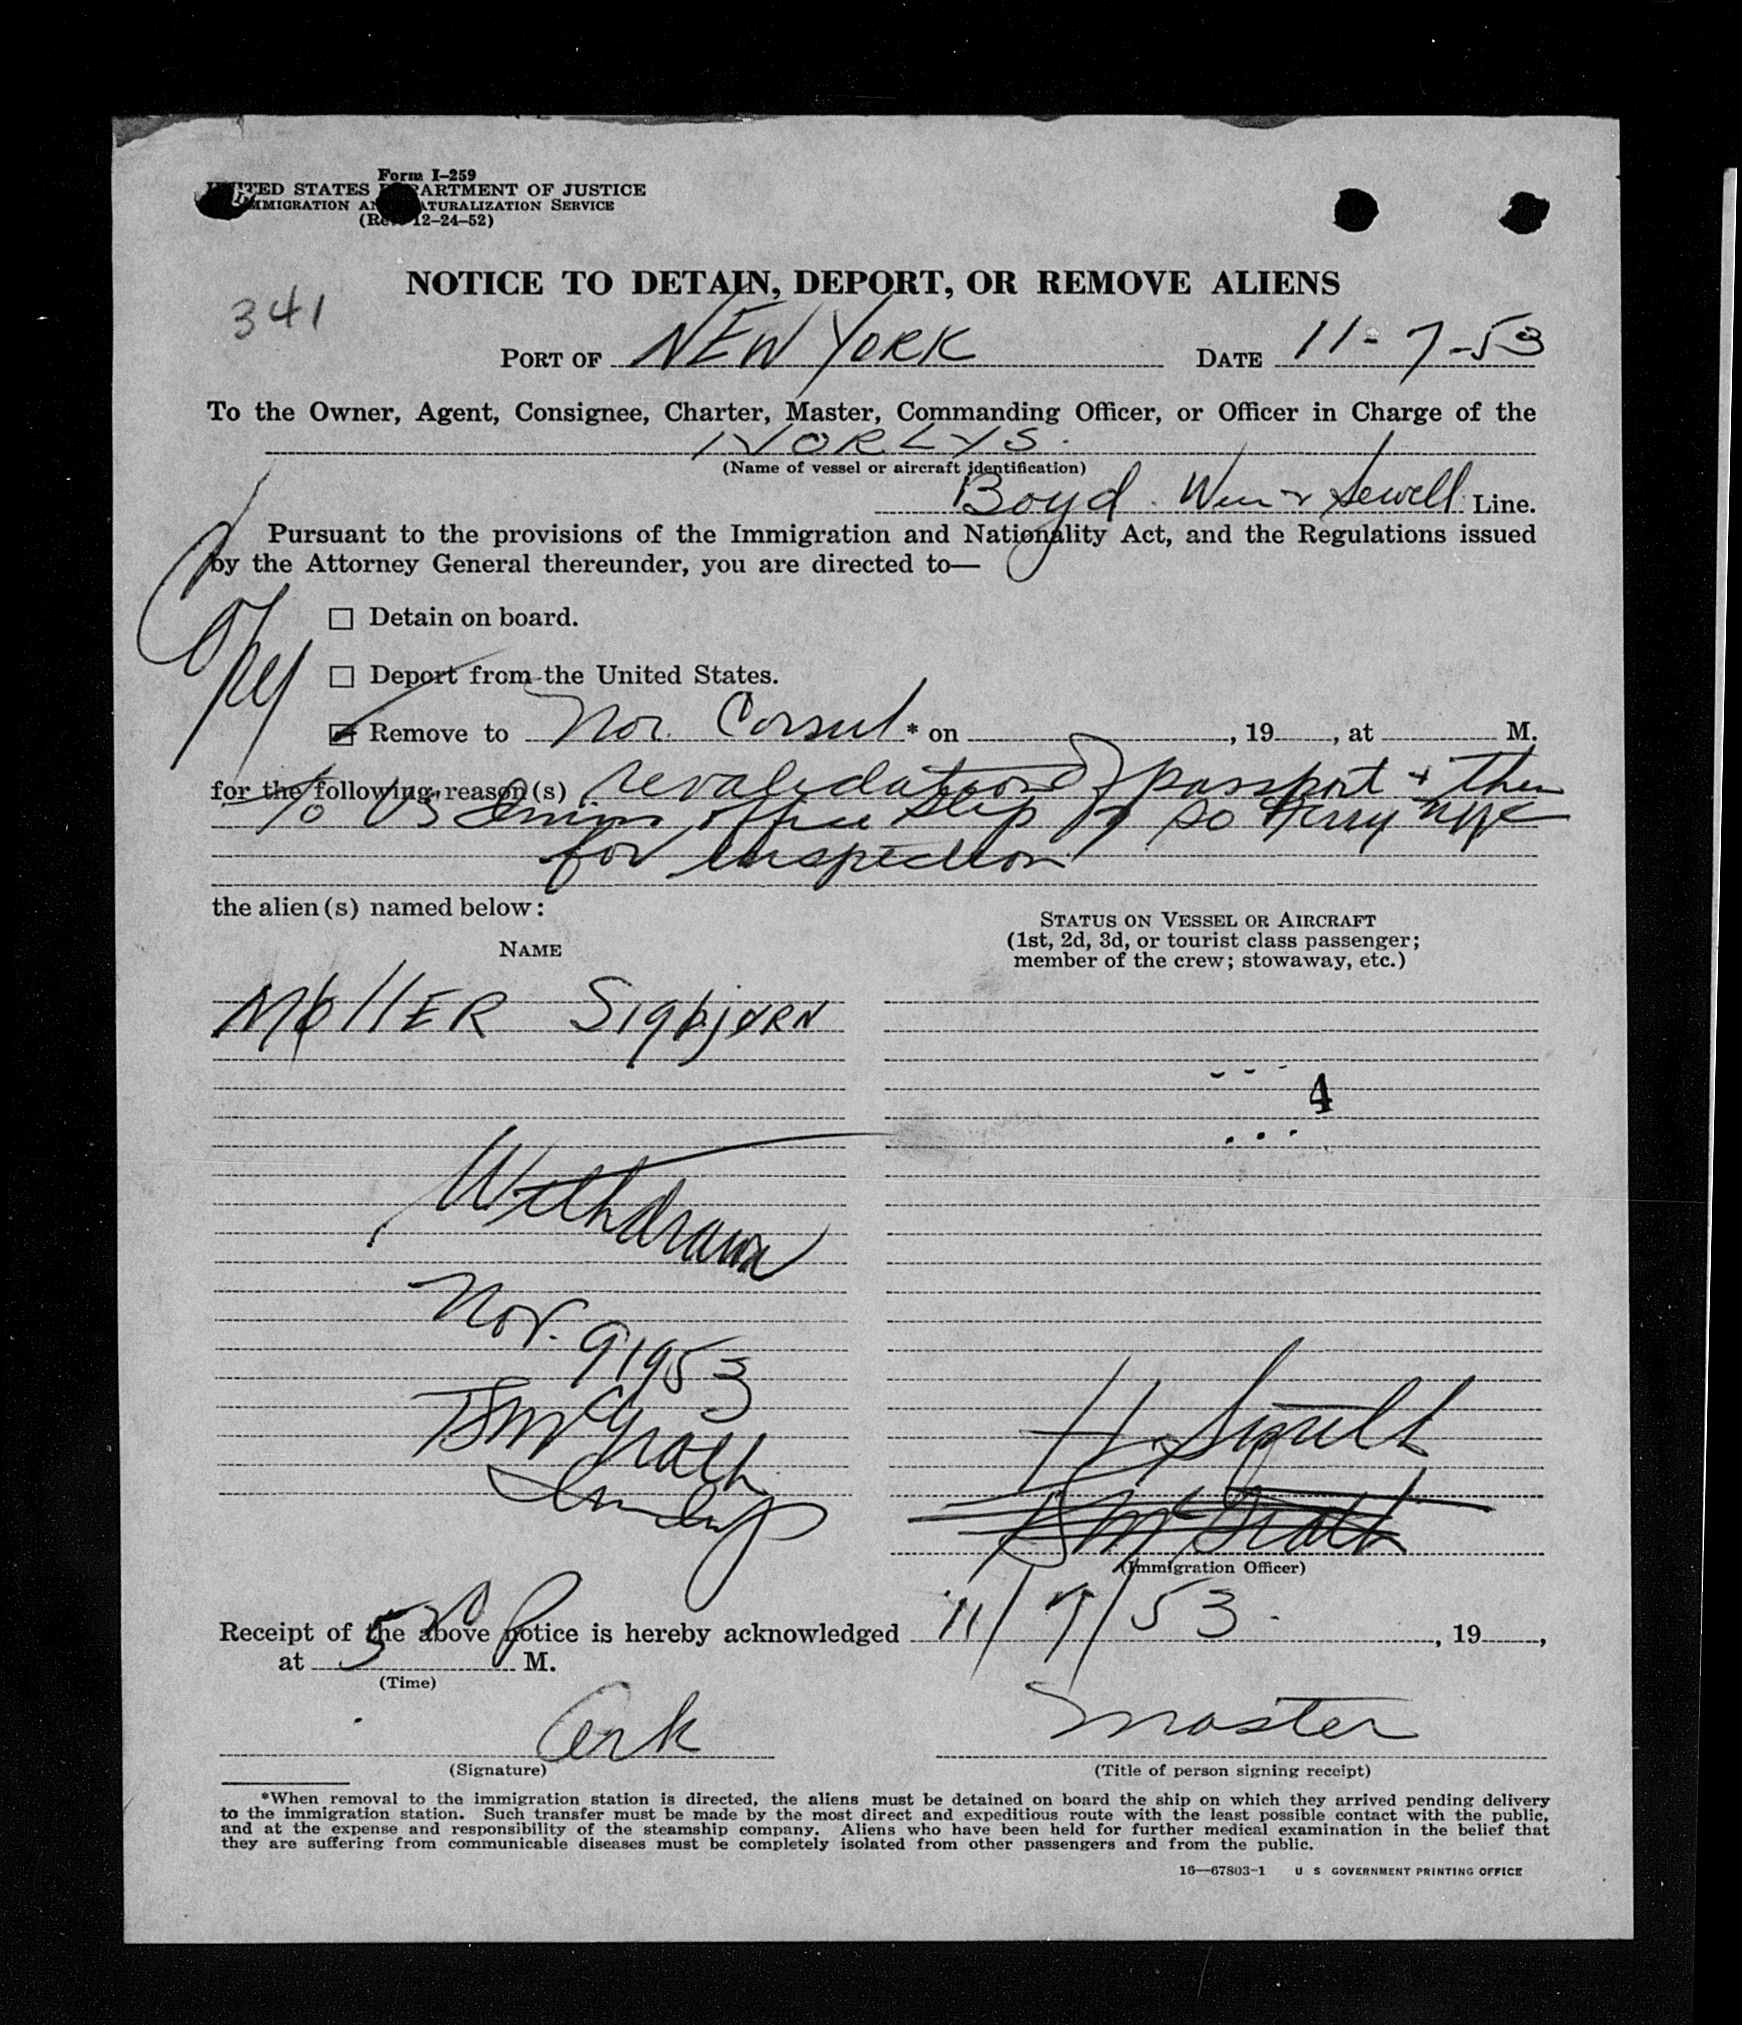 Form I-259
UNITED STATES DEPARTMENT OF JUSTICE
IMMIGRATION AND NATURALIZATION SERVICE
(Rev. 12-24-52)
NOTICE TO DETAIN, DEPORT, OR REMOVE ALIENS
341
PORT OF NEW YORK DATE 11-7-53
To the Owner, Agent, Consignee, Charter, Master, Commanding Officer, or Officer in Charge of the
NORLYS.
(Name of vessel or aircraft identification)
Boyd Weir & Sewell Line.
Pursuant to the provisions of the Immigration and Nationality Act, and the Regulations issued
by the Attorney General thereunder, you are directed to—
Copy
☐ Detain on board.
☐ Deport from the United States.
☑ Remove to Nor. Consul * on , 19 , at M.
for the following reason(s) revalidation of passport + then
to US Immig office Slip So Ferry NYC
for inspection
the alien(s) named below:
NAME
STATUS ON VESSEL OR AIRCRAFT
(1st, 2d, 3d, or tourist class passenger;
member of the crew; stowaway, etc.)
MØllER Sigbjørn
4
Withdrawn
Nov. 9 1953
McGrath
H. Smith
McGrath
(Immigration Officer)
Receipt of the above notice is hereby acknowledged 11/7/53. , 19 ,
at 5 P M.
(Time)
Master
(Signature)
(Title of person signing receipt)
*When removal to the immigration station is directed, the aliens must be detained on board the ship on which they arrived pending delivery
to the immigration station. Such transfer must be made by the most direct and expeditious route with the least possible contact with the public,
and at the expense and responsibility of the steamship company. Aliens who have been held for further medical examination in the belief that
they are suffering from communicable diseases must be completely isolated from other passengers and from the public.
16—67803-1 U S GOVERNMENT PRINTING OFFICE